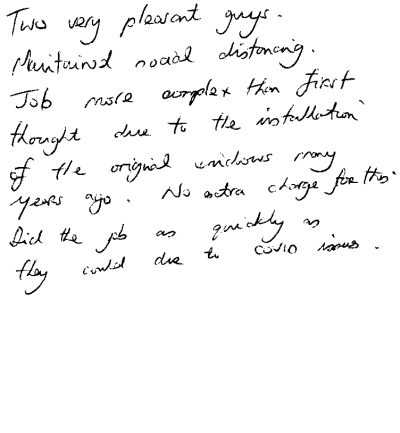 Two very pleasant guys.
Maintained social distancing.
Job more complex than first
thought due to the installation
of the original windows many
years ago. No extra charge for this.
Did the job as quickly as
they could due to covid issues.